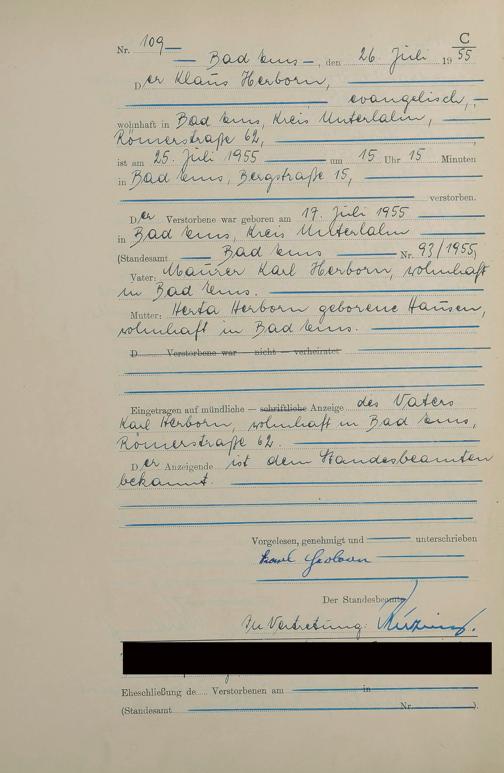 C
Nr. 109
Bad Ems, den 26. Juli 1955
Der Klaus Herborn,
evangelisch,
wohnhaft in Bad Ems, Kreis Unterlahn,
Römerstraße 62,
ist am 25. Juli 1955 um 15 Uhr 15 Minuten
in Bad Ems, Bergstraße 15,
verstorben.
Der Verstorbene war geboren am 19. Juli 1955
in Bad Ems, Kreis Unterlahn
(Standesamt Bad Ems Nr. 93/1955)
Vater: Maurer Karl Herborn, wohnhaft
in Bad Ems.
Mutter: Herta Herborn geborene Hansen,
wohnhaft in Bad Ems.
D Verstorbene war – nicht – verheiratet
Eingetragen auf mündliche – schriftliche Anzeige des Vaters
Karl Herborn, wohnhaft in Bad Ems,
Römerstraße 62.
Der Anzeigende ist dem Standesbeamten
bekannt.
Vorgelesen, genehmigt und unterschrieben
Karl Herborn
Der Standesbeamte
In Vertretung:
Eheschließung de Verstorbenen am in
(Standesamt Nr. ).